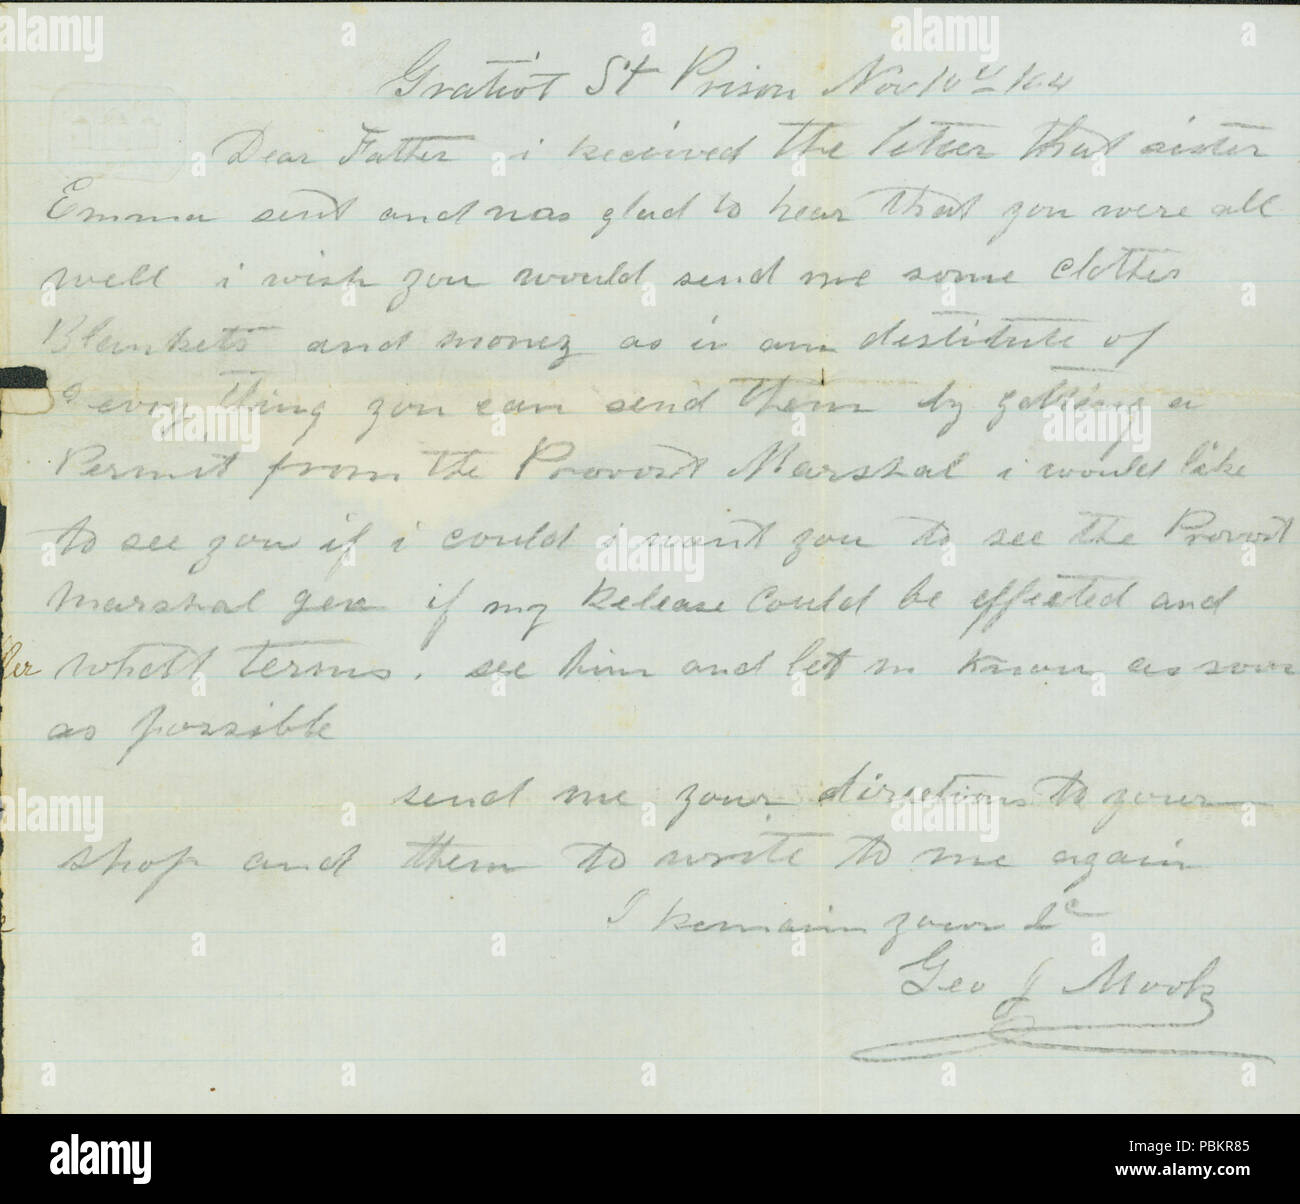 Gratiot St Prison Nov 10th /64
Dear Father i received the letter that sister
Emma sent and was glad to hear that you were all
well i wish you would send me some clothes
Blankets and money as i am destitute of
every thing you can send them by getting a
Permit from the Provost Marshal i would like
to see you if i could i want you to see the Provost
Marshal gen if my Release could be effected and
whatt terms. see him and let m know as soon
as possible
send me your directions to your
shop and them to write to me again
I remain your &c
Geo J Mook
alamy
PBKR85
www.alamy.com